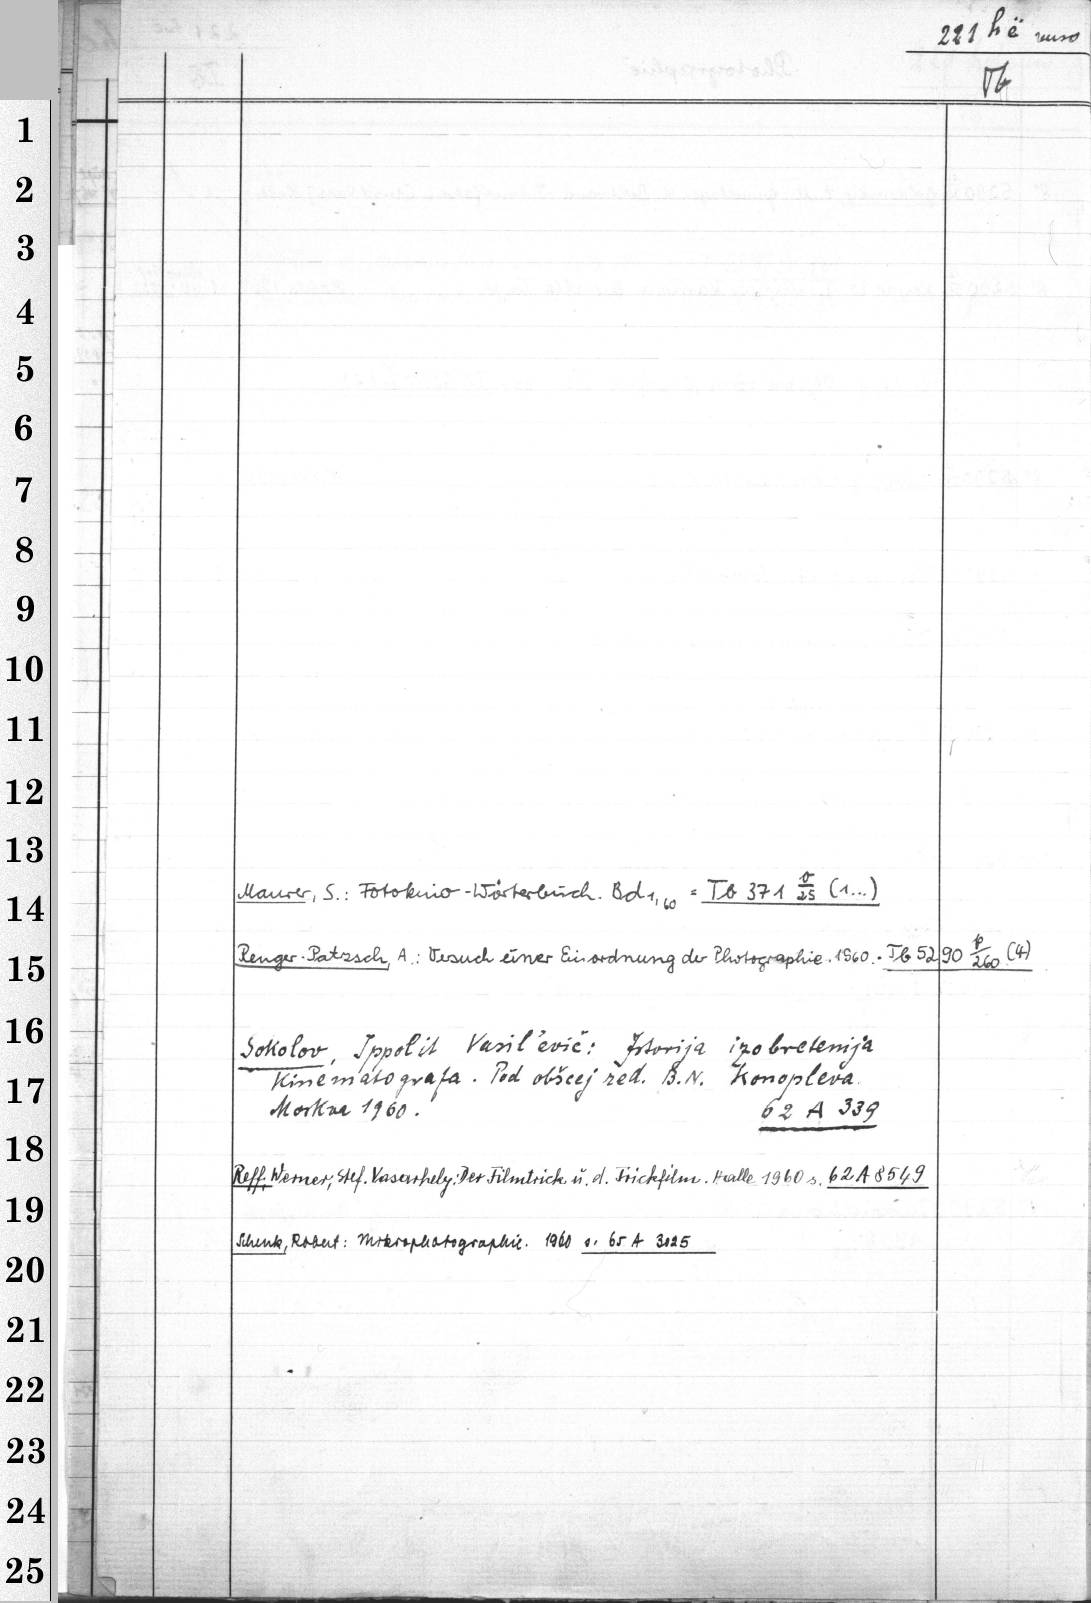 221 hë verso
Tb
1
2
3
4
5
6
7
8
9
10
11
12
13
14
Maurer, S.: Fotokino-Wörterbuch. Bd 1, 60 = Tb 371 v/25 (1...)
15
Renger-Patzsch, A.: Versuch einer Einordnung der Photographie. 1960. = Tb 5290 p/260 (4)
16
Sokolov, Ippolit Vasil'evič: Istorija izobretenija
17
Kinematografa. Pod obščej red. B.N. Konopleva.
Moskva 1960. 62 A 339
18
Reff, Werner; Stef. Vasarhely: Der Filmtrick u. d. Trickfilm. Halle 1960 s. 62 A 8549
19
Schenk, Robert: Mikrophotographie. 1960 s. 65 A 3025
20
21
22
23
24
25